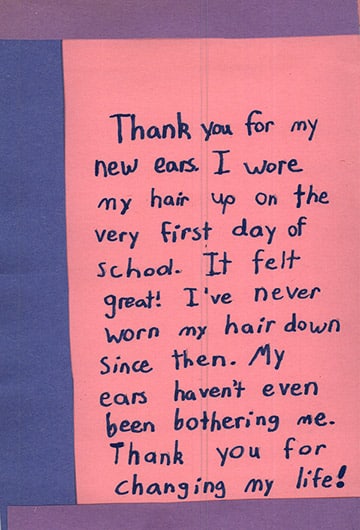 Thank you for my
new ears. I wore
my hair up on the
very first day of
school. It felt
great! I've never
worn my hair down
since then. My
ears haven't even
been bothering me.
Thank you for
changing my life!